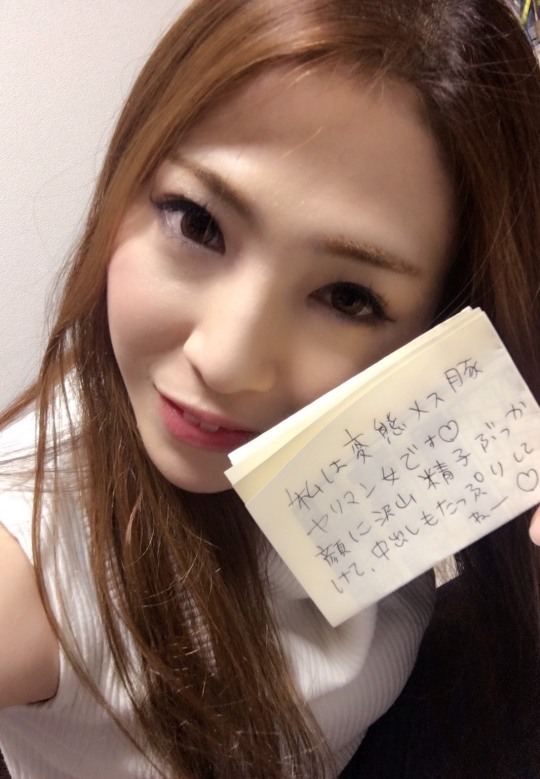 私は変態メス豚
ヤリマン女です♡
顔に沢山精子ぶっか
けて、中出しもたっぷりして
ねー♡